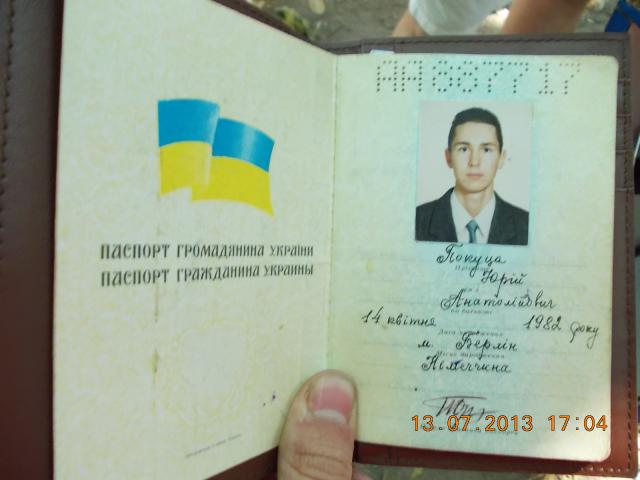 ПАСПОРТ ГРОМАДЯНИНА УКРАЇНИ
ПАСПОРТ ГРАЖДАНИНА УКРАИНЫ
АА667717
Покуца
Юрій
Анатолійович
по батькові
14 квітня 1982 року
м. Берлін
Німеччина
13.07.2013 17:04